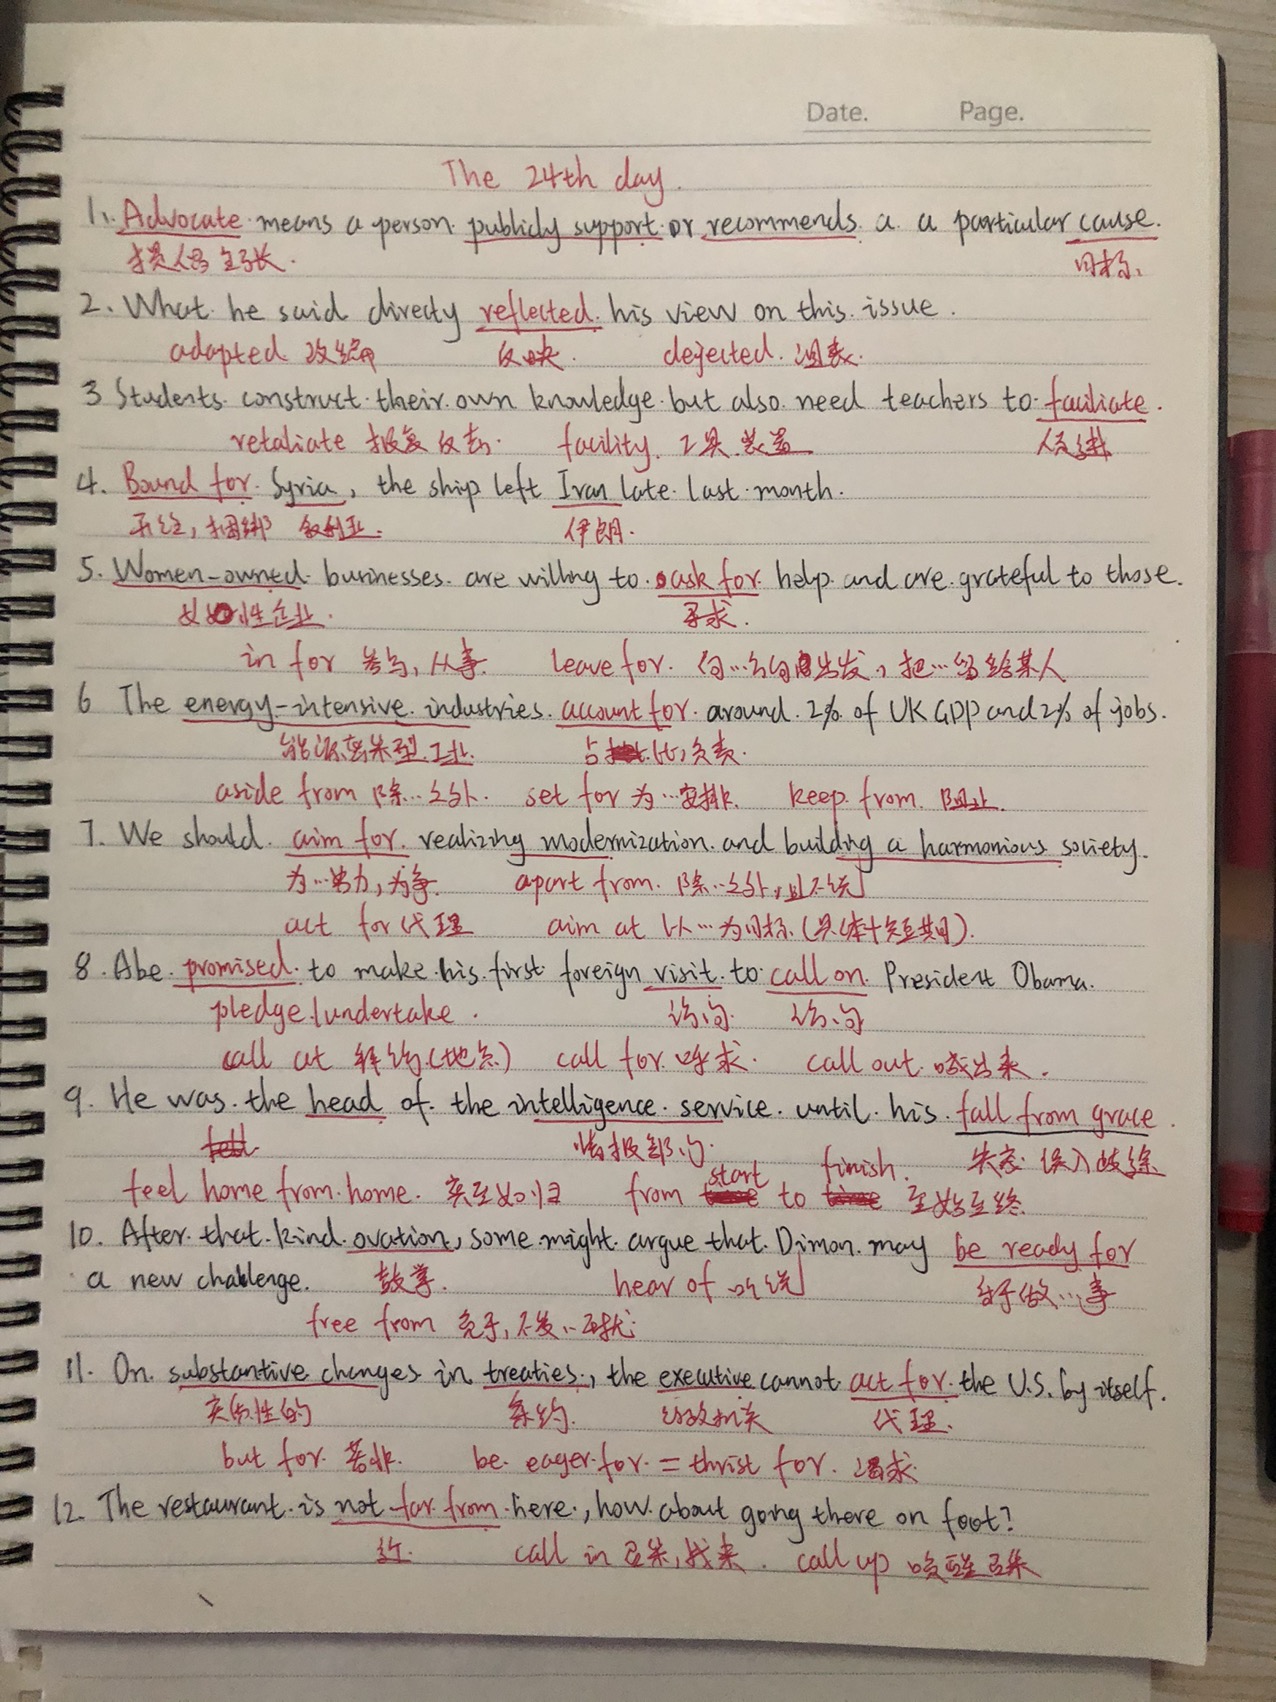 Date. Page.
The 24th day.
1. Advocate means a person publicly support or recommends a a particular cause.
提倡 主张. 目标.
2. What he said directly reflected his view on this issue.
adapted 改编 反映. dejected. 沮丧.
3 Students construct their own knowledge but also need teachers to faciliate.
retaliate 报复 反击. facility. 工具 装置 促进
4. Bound for Syria, the ship left Iran late last month.
开往, 捆绑 叙利亚. 伊朗.
5. Women-owned businesses are willing to ask for help and are grateful to those.
女性企业. 寻求.
in for 参与, 从事. leave for. 向…方向出发, 把…留给某人
6 The energy-intensive industries account for around 2% of UK GDP and 2% of jobs.
能源密集型工业. 占比, 负责.
aside from 除…之外. set for 为…安排. keep from 阻止.
7. We should aim for realizing modernization and building a harmonious society.
为…努力, 为争. apart from. 除…之外, 且不说
act for 代理 aim at 以…为目标 (具体+短期).
8. Abe promised to make his first foreign visit to call on President Obama.
pledge/undertake. 访问. 访问
call at 拜访(地点) call for 呼求. call out 喊出来.
9. He was the head of the intelligence service until his fall from grace.
情报部门. 失宠 误入歧途
feel home from home. 宾至如归 from start to finish. 至始至终
10. After that kind ovation, some might argue that Dimon may be ready for
a new challenge. 鼓掌. hear of 听说 准备做…事
free from 免于, 不受…干扰
11. On substantive changes in treaties, the executive cannot act for the U.S. by itself.
实质性的 条约. 行政机关 代理.
but for. 若非. be eager for = thrist for. 渴求
12. The restaurant is not far from here, how about going there on foot?
近. call in 召来, 找来. call up 唤醒 召集